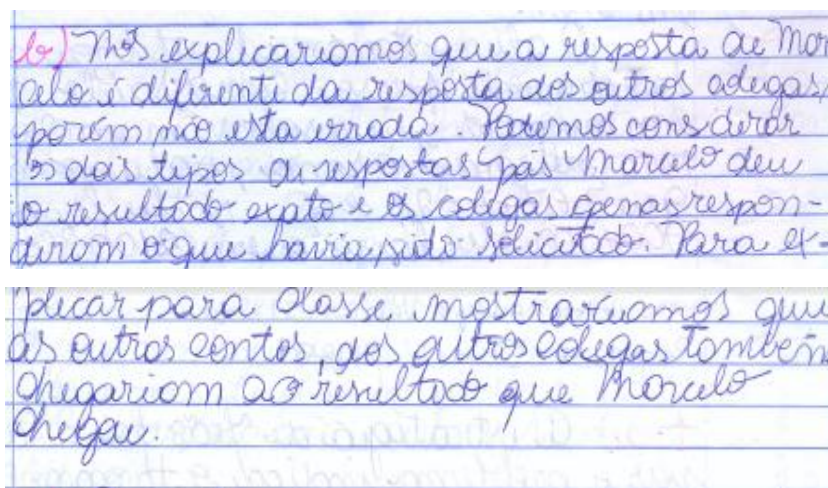 b) Nós explicariamos que a resposta de Mar
celo é diferente da resposta dos outros colegas,
porém não esta errada. Podemos considerar
os dois tipos de respostas pois Marcelo deu
o resultado exato e os colegas apenas respon-
deram o que havia sido solicitado. Para ex-
plicar para classe mostrariamos que
as outras contas, dos outros colegas também
chegariam ao resultado que Marcelo
chegou.